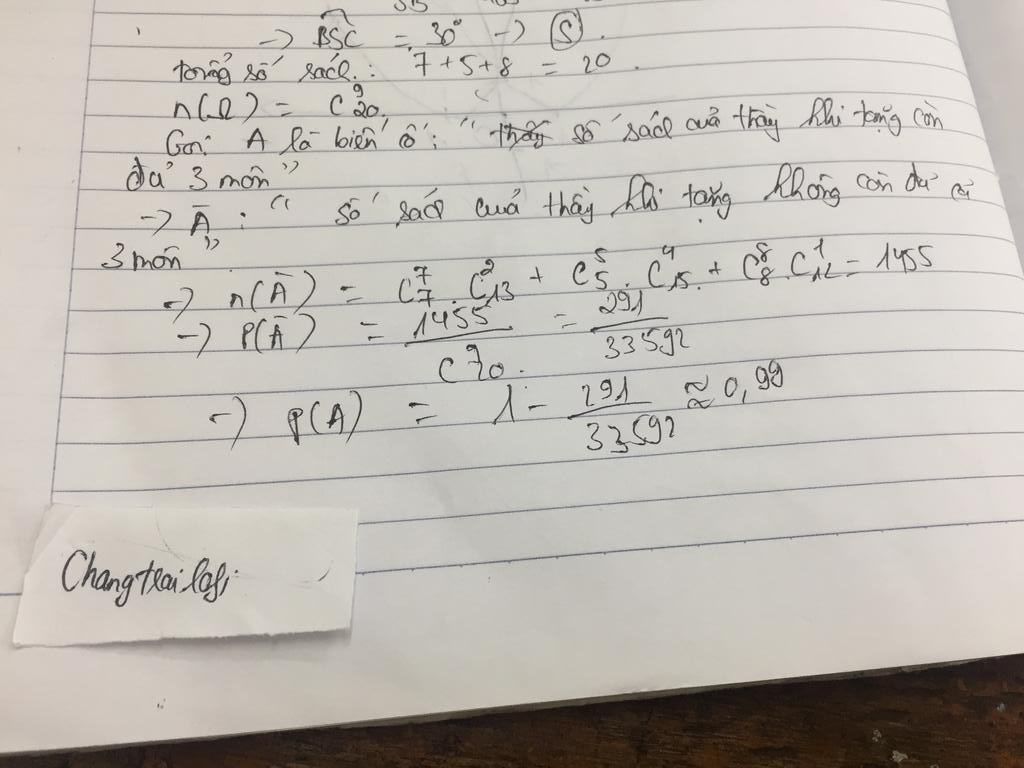 → BSC = 30° → Ⓢ.
tổng số sách: 7 + 5 + 8 = 20.
n(Ω) = C⁹₂₀.
Gọi A là biến cố: “ thầy số sách của thầy khi tặng còn
đủ 3 môn”
→ Ā: “ số sách của thầy khi tặng không còn đủ cả
3 môn”
→ n(Ā) = C⁷₇ . C²₁₃ + C⁵₅ . C⁴₁₅ . + C⁸₈ . C¹₁₂ = 1455
→ P(Ā) = 1455/C⁹₂₀. = 291/33592
→ P(A) = 1 - 291/33592 ≈ 0,99
Changtrailofi